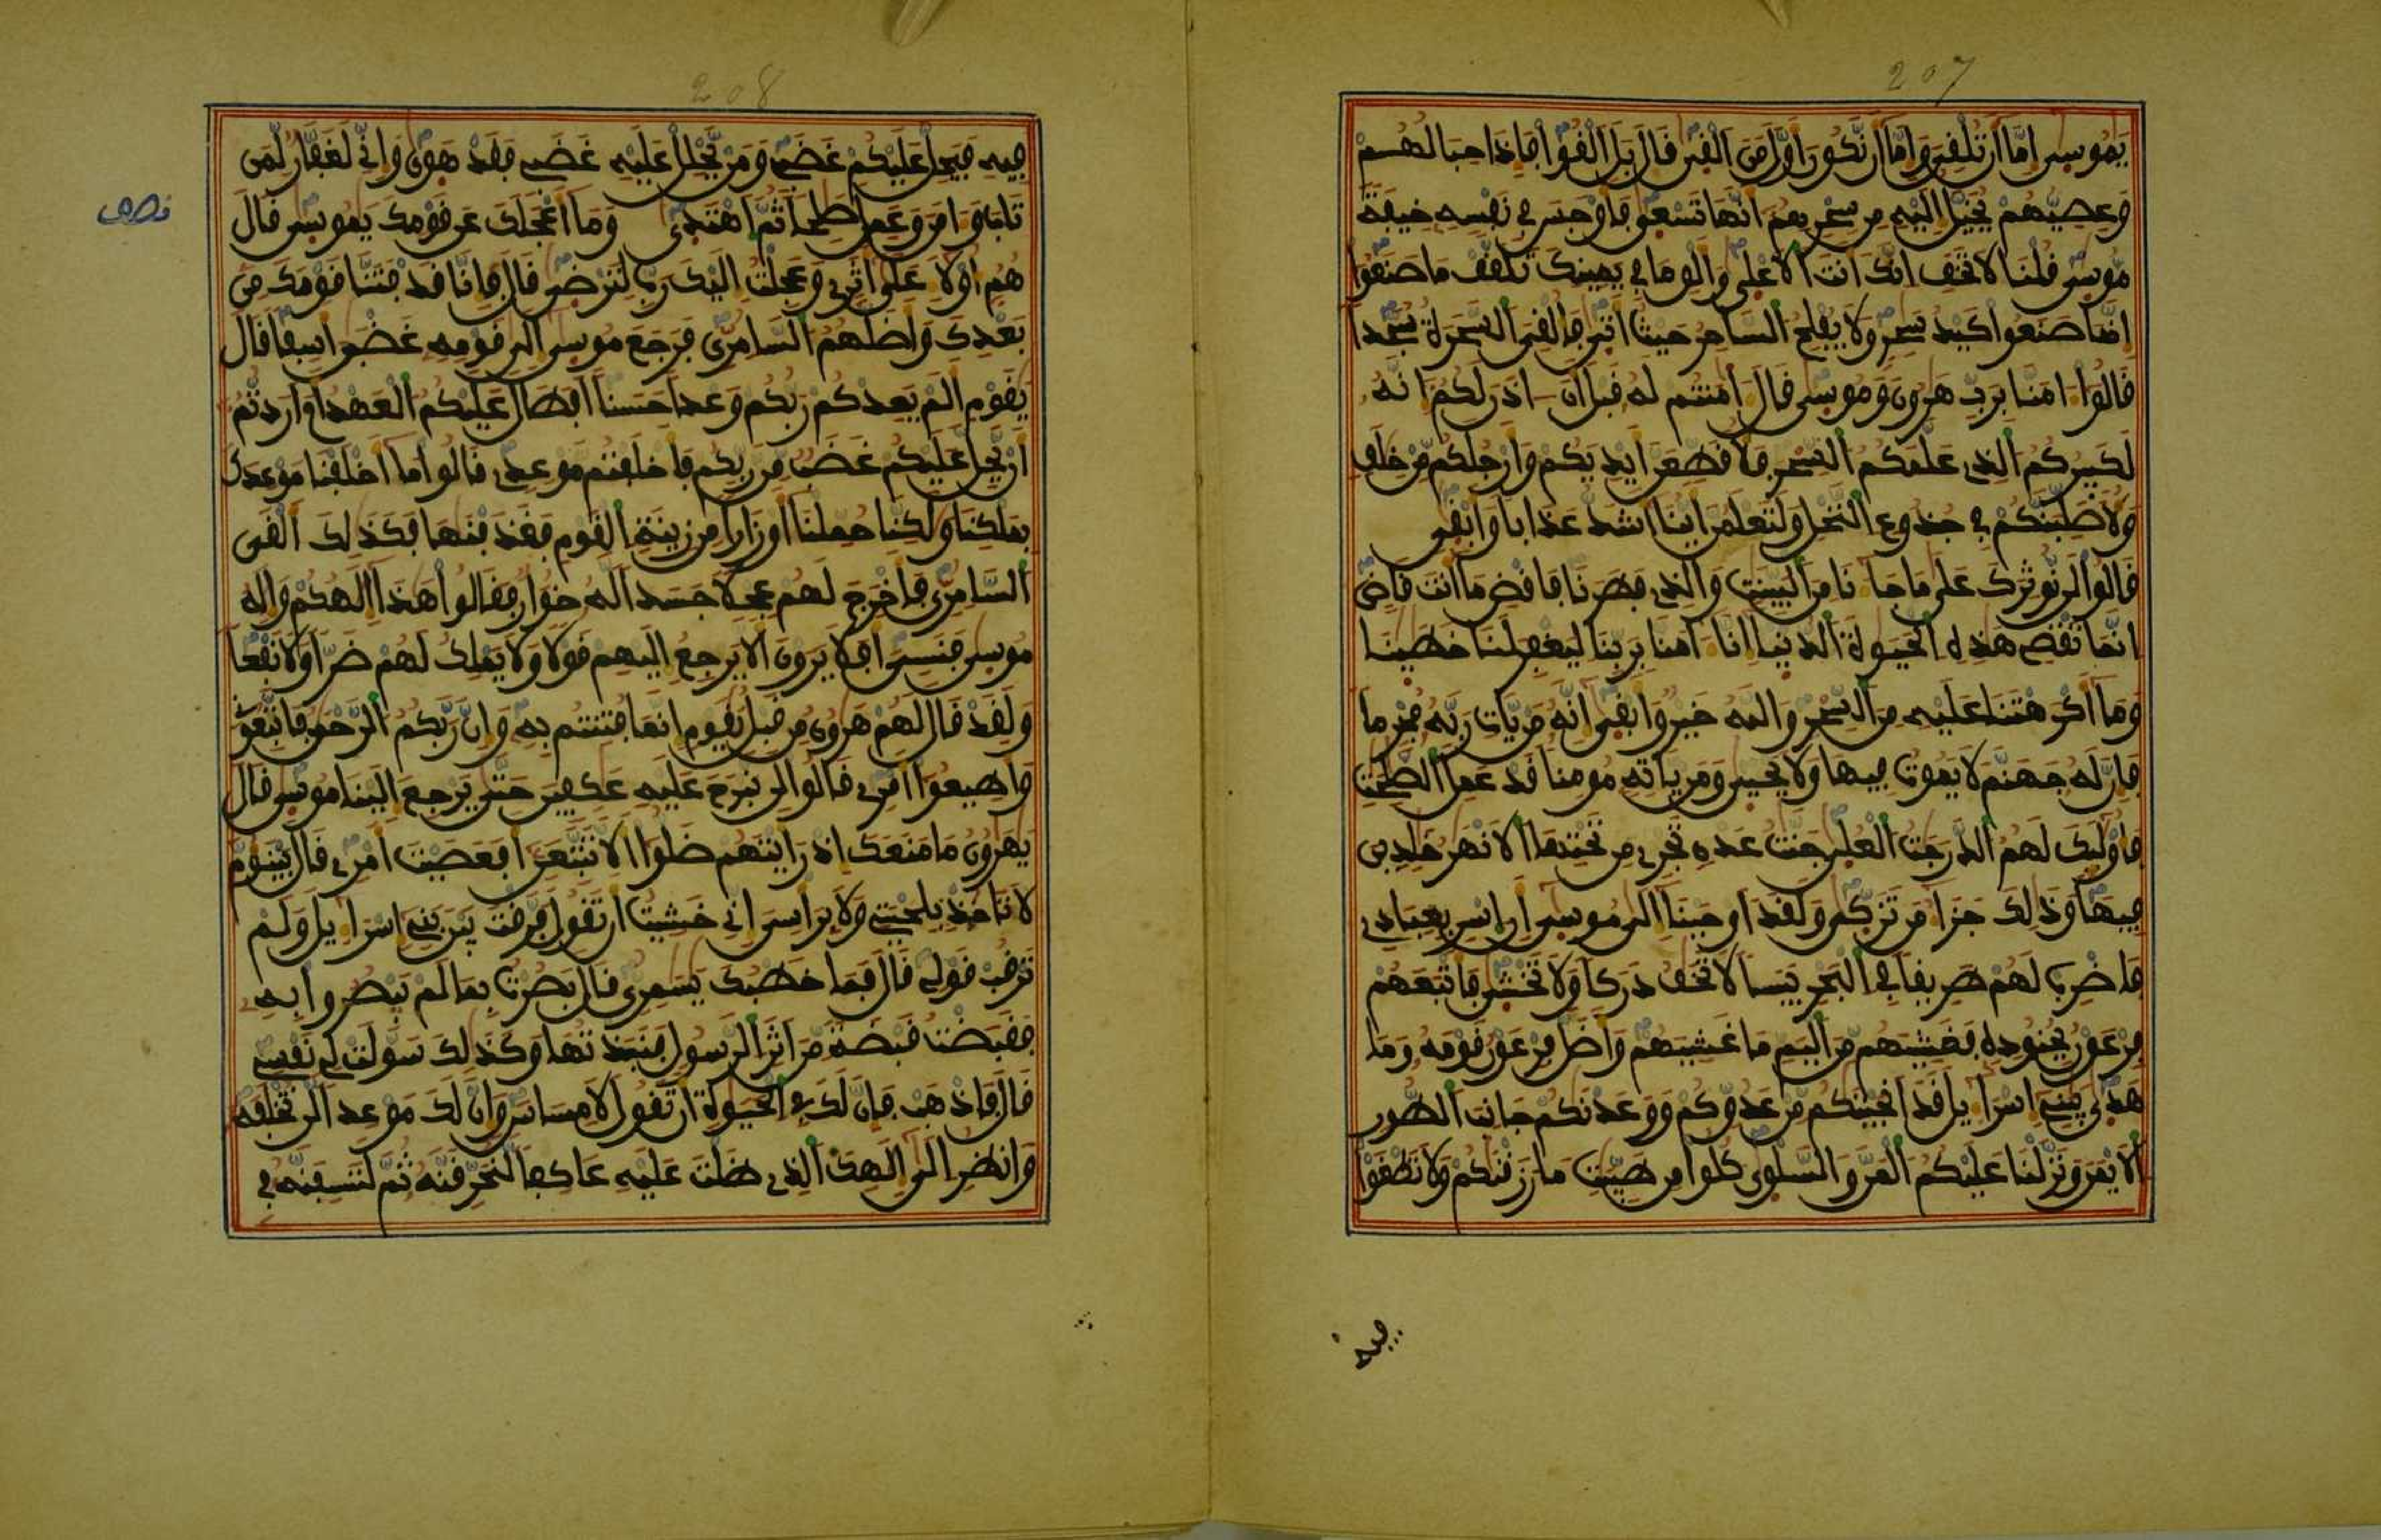 207
يموسى إما أن تلقي وإما أن نكون أول من ألقى قال بل ألقوا فإذا حبالهم
وعصيهم يخيل إليه من سحرهم أنها تسعى فأوجس في نفسه خيفة
موسى قلنا لا تخف إنك أنت الأعلى وألق ما في يمينك تلقف ما صنعوا
إنما صنعوا كيد سحر ولا يفلح الساحر حيث أتى فألقي السحرة سجدا
قالوا ءامنا برب هرون وموسى قال ءامنتم له قبل أن ـاذن لكم إنه
لكبيركم الذي علمكم السحر فلأقطعن أيديكم وأرجلكم من خلف
ولأصلبنكم في جذوع النخل ولتعلمن أينا أشد عذابا وأبقى
قالوا لن نوثرك على ما جاءنا من البينت والذي فطرنا فاقض ما أنت قاض
إنما تقضي هذه الحيوة الدنيا إنا ءامنا بربنا ليغفر لنا خطينا
وما أكرهتنا عليه من السحر والله خير وأبقى إنه من يات ربه مجرما
فإن له جهنم لا يموت فيها ولا يحيى ومن ياته مومنا قد عمل الصلحت
فأولئك لهم الدرجت العلى جنت عدن تجري من تحتها الأنهر خلدين
فيها وذلك جزاء من تزكى ولقد أوحينا إلى موسى أن اسر بعبادي
فاضرب لهم طريقا في البحر يبسا لا تخف دركا ولا تخشى فاتبعهم
فرعون بجنوده فغشيهم من اليم ما غشيهم وأضل فرعون قومه وما
هدى يبني إسراءيل قد أنجينكم من عدوكم ووعدنكم جانب الطور
الأيمن ونزلنا عليكم المن والسلوى كلوا من طيبت ما رزقنكم ولا تطغوا
فيه
208
فيه فيحل عليكم غضبي ومن يحلل عليه غضبي فقد هوى وإني لغفار لمن
تاب وءامن وعمل صلحا ثم اهتدى وما أعجلك عن قومك يموسى قال
هم أولاء على أثري وعجلت إليك رب لترضى قال فإنا قد فتنا قومك من
بعدك وأضلهم السامري فرجع موسى إلى قومه غضبن أسفا قال
يقوم ألم يعدكم ربكم وعدا حسنا أفطال عليكم العهد أم أردتم
أن يحل عليكم غضب من ربكم فأخلفتم موعدي قالوا ما أخلفنا موعدك
بملكنا ولكنا حملنا أوزارا من زينة القوم فقذفنها فكذلك ألقى
السامري فأخرج لهم عجلا جسدا له خوار فقالوا هذا إلهكم وإله
موسى فنسي أفلا يرون ألا يرجع إليهم قولا ولا يملك لهم ضرا ولا نفعا
ولقد قال لهم هرون من قبل يقوم إنما فتنتم به وإن ربكم الرحمن فاتبعوني
وأطيعوا أمري قالوا لن نبرح عليه عكفين حتى يرجع إلينا موسى قال
يهرون ما منعك إذ رأيتهم ضلوا ألا تتبعن أفعصيت أمري قال يبنؤم
لا تاخذ بلحيتي ولا براسي إني خشيت أن تقول فرقت بين بني إسراءيل ولم
ترقب قولي قال فما خطبك يسمري قال بصرت بما لم يبصروا به
فقبضت قبضة من أثر الرسول فنبذتها وكذلك سولت لي نفسي
قال فاذهب فإن لك في الحيوة أن تقول لا مساس وإن لك موعدا لن تخلفه
وانظر إلى إلهك الذي ظلت عليه عاكفا لنحرقنه ثم لننسفنه في
نصف